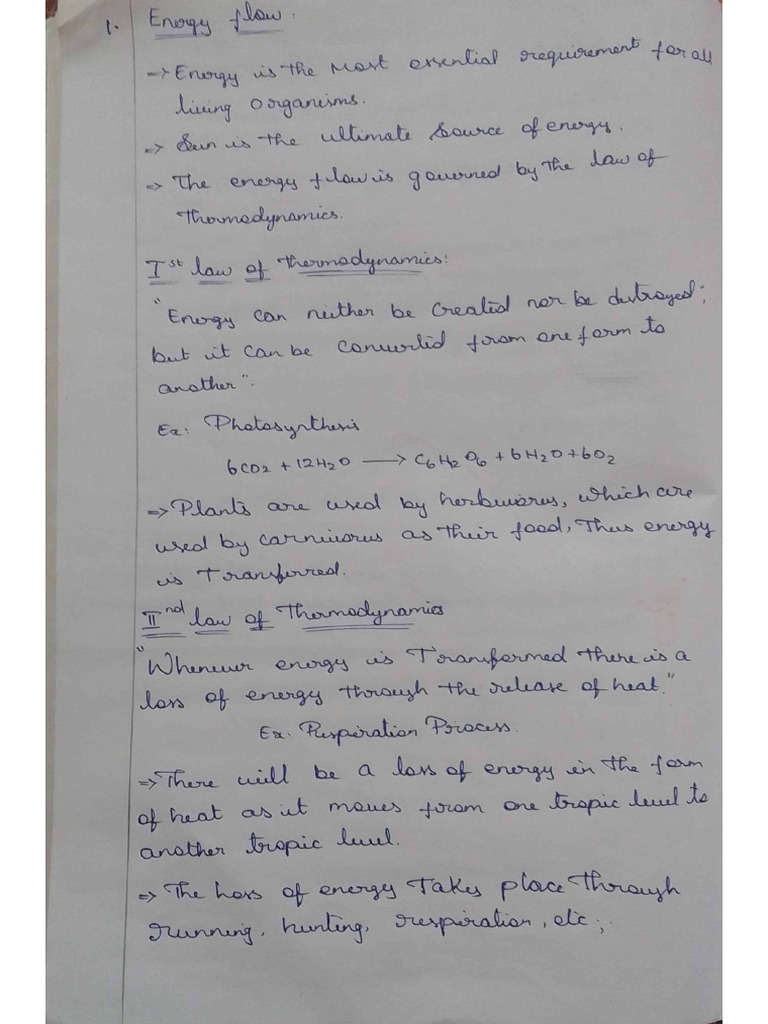 1. Energy flow:
=> Energy is the most essential requirement for all
living organisms.
=> Sun is the ultimate source of energy.
=> The energy flow is governed by the law of
thermodynamics.
Ist law of thermodynamics:
"Energy can neither be created nor be distroyed;
but it can be converted from one form to
another".
Ex: Photosynthesis
6CO2 + 12H2O ⟶ C6H2O6 + 6H2O + 6O2
=> Plants are used by herbivorus, which are
used by carnivorus as their food, Thus energy
is Transferred.
IInd law of Thermodynamics
"Whenever energy is Transformed there is a
loss of energy through the release of heat."
Ex: Respiration Process.
=> There will be a loss of energy in the form
of heat as it moves from one tropic level to
another tropic level.
=> The loss of energy Takes place through
running, hunting, respiration, etc;.